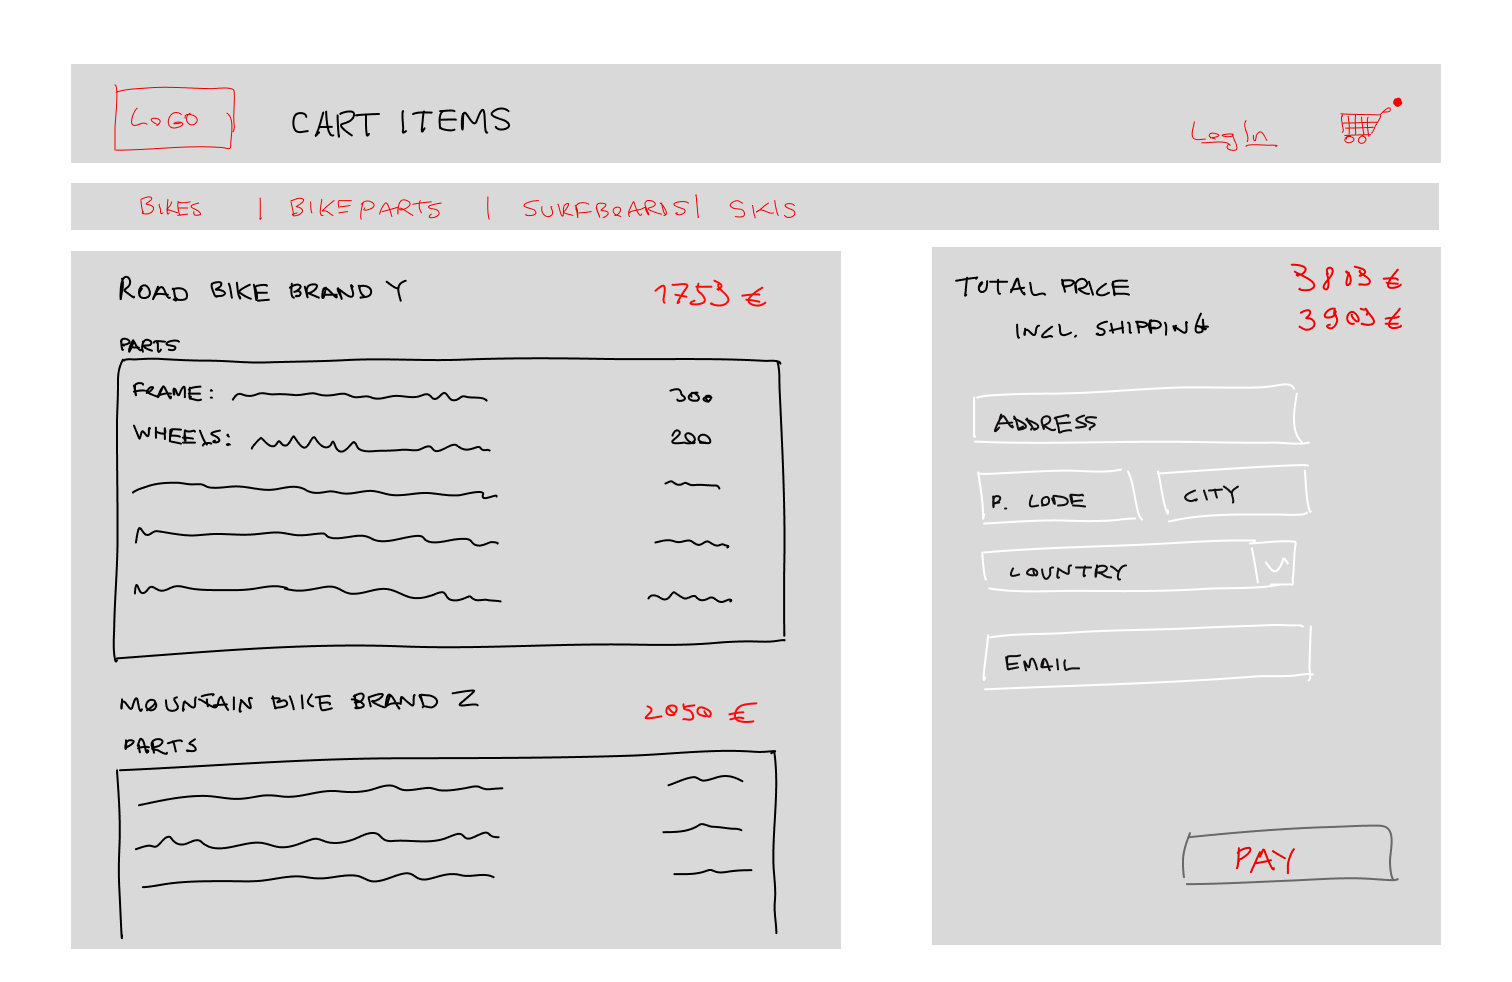 LOGO CART ITEMS LogIn
BIKES | BIKEPARTS | SURFBOARDS | SKIS
ROAD BIKE BRAND Y 1753 €
PARTS
FRAME: 300
WHEELS: 200
MOUNTAIN BIKE BRAND Z 2050 €
PARTS
TOTAL PRICE 3803 €
INCL. SHIPPING 3903 €
ADDRESS
P. CODE CITY
COUNTRY
EMAIL
PAY